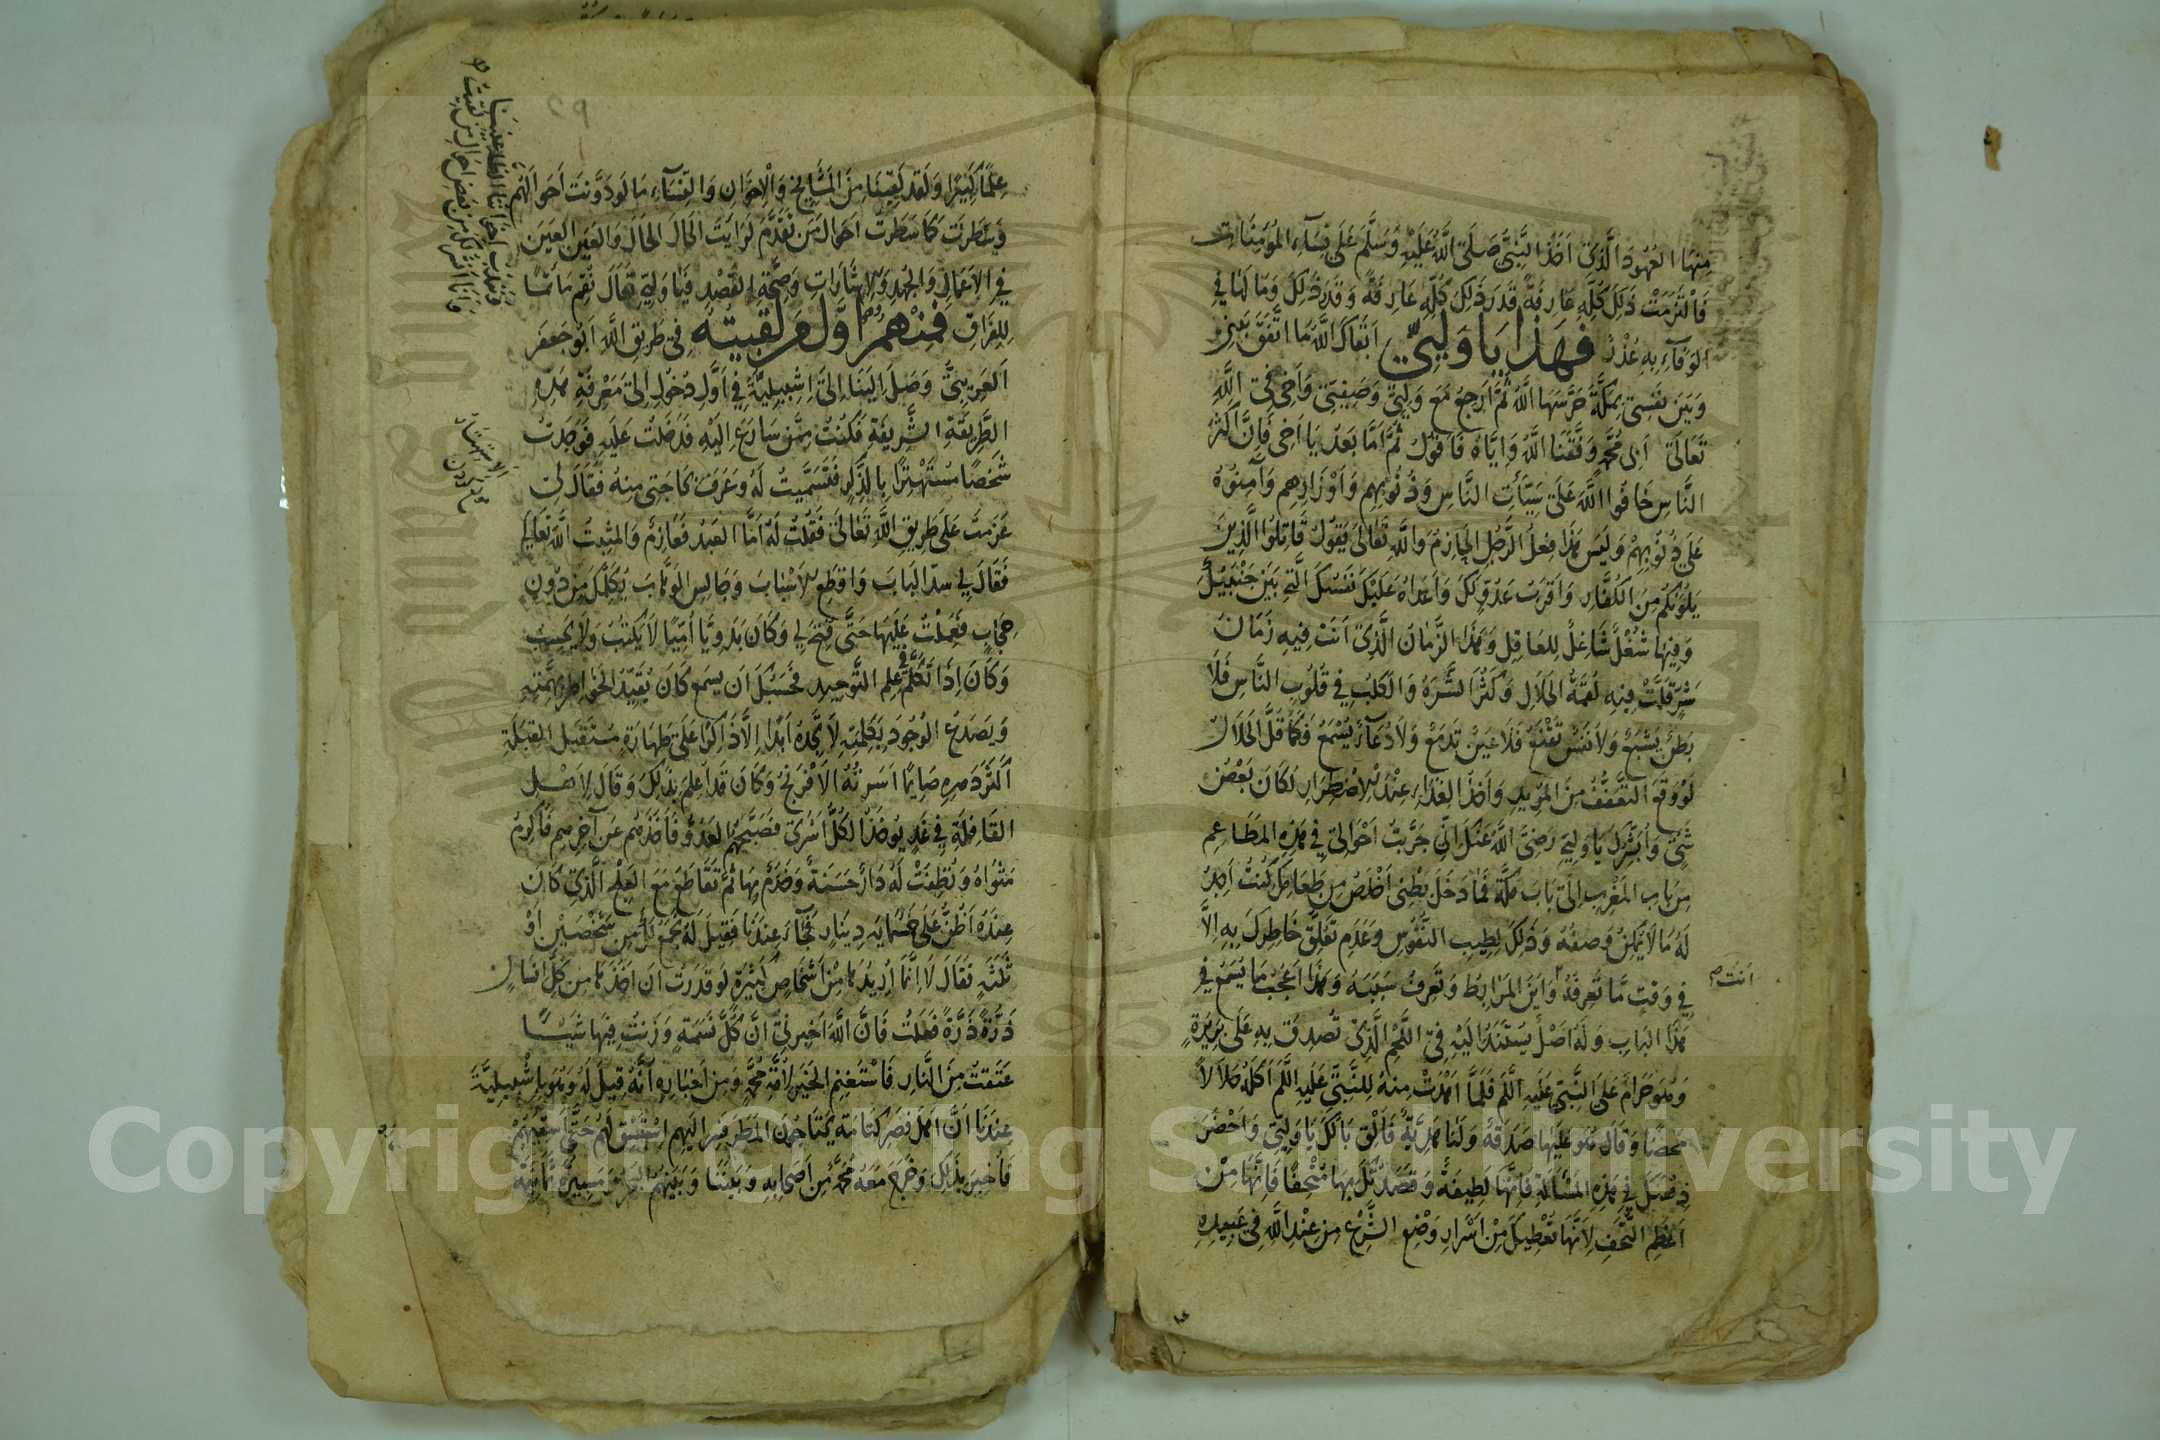 مِنْهَا العُهُودَ الَّذِي اَخَذَ النَّبِيُّ صَلَّى اللَّهُ عَلَيْهِ وَسَلَّمَ عَلَى نِسَآءِ المُؤمِنَاتِ
فَالْتَزَمَتْ ذَلِكَ كُلَّهِ عَارِفَةً قَدَرَ ذَلِكَ كُلِّهِ عَارِفَةً وَقَدَرَ ذَلِكَ وَمَا لَهَا فِي
الوَفَآءِ بِهِ عُذْرٌ فهذا يا وَلِيّي اَبقَاكَ اللَّهُ مَا اتَّفَقَ بَينِي
وَبَينَ نَفسِي بِمَكَّةَ حَرَسَهَا اللَّهُ ثُمَّ اَرجِعُ مَعَ وَلِيّي وَصَفِيّي وَاَخِي فِي اللَّهِ
تَعَالَى اَبِي مُحَمَّدٍ وَفَّقَنَا اللَّهُ وَاِيَّاهُ فَاَقُولُ ثُمَّ اَمَّا بَعدُ يَا اَخِي فَاِنَّ اَكثَرَ
النَّاسِ خَافُوا اللَّهَ عَلَى سَيِّئَاتِ النَّاسِ وَذُنُوبِهِم وَاَوْزَارِهِم وَآمِنُوهُ
عَلَى ذُنُوبِهِمْ وَلَيسَ هَذَا فِعلُ الرَّجُلِ الحَازِمِ وَاللَّهُ تَعَالَى يَقُولُ قَاتِلُوا الَّذِينَ
يَلُونَكُم مِنَ الكُفَّارِ وَاَقرَبُ عَدُوٍّ لَكَ وَاَعدَاهُ عَلَيْكَ نَفسُكَ الَّتِي بَينَ جَنْبَيْكَ
وَفِيهَا شُغْلٌ شَاغِلٌ لِلعَاقِلِ وَهَذَا الزَّمَانَ الَّذِي اَنتَ فِيهِ زَمَانُ
شَرٍّ قَلَّتْ فِيهِ لُقمَةُ الحَلَالِ وَكَثُرَ الشَّرَهُ وَالكَلَبُ فِي قُلُوبِ النَّاسِ فَلَا
بَطنٌ يَشْبَعُ وَلَا نَفسٌ تَقْنَعُ فَلَا عَينٌ تَدمَعُ وَلَا دُعَآءٌ يُسْمَعُ فَكَمَا قَلَّ الحَلَالُ
لَوْ وَقَعَ التَّعَفُّفُ مِنَ المَزِيدِ وَاَخذُ الغِذَاءِ عِنْدَ الاضْطِرَارِ لَكَانَ بَعْضُ
شَيْءٍ وَاُبَشِّرُكَ يَا وَلِيِّي رَضِيَ اللَّهُ عَنْكَ اَنِّي جَرَّبتُ اَحْوَالِي فِي هَذِهِ المَطَاعِمِ
مِن بَابِ المَغْرِبِ اِلَى بَابِ مَكَّةَ فَمَا دَخَلَ بَطْنِي اَخْلَصُ مِن طَعَامِكَ كُنتُ اَجِدُ
لَهُ مَا لَا يُمكِنُ وَصفُهُ وَذَلِكَ لِطِيبِ النُّفُوسِ وَعَدَمِ تَعَلُّقِ خَاطِرِكَ بِهِ اِلَّا
فِي وَقتٍ مَا تَعرِفُهُ وَاَينَ المَرَابِطُ وَتَعرِفُ سَبَبَهُ وَهَذَا اَعجَبُ مَا يُسمَعُ فِي
اَنتَ
هَذَا البَابِ وَلَهُ اَصْلٌ يَستَنِدُ اِلَيْهِ فِي اللَّحْمِ الَّذِي تُصُدِّقَ بِهِ عَلَى بَرِيرَةَ
وَهُوَ حَرَامٌ عَلَى النَّبِيِّ عَلَيهِ السَّلَم فَلَمَّا اَهْدَتْ مِنهُ لِلنَّبِيِّ عَلَيهِ السَّلَم اَكَلَهُ حَلَالًا
مَحضًا وَقَالَ هُوَ عَلَيْهَا صَدَقَةٌ وَلَنَا هَدِيَّةٌ فَاَلْقِ بَالَكَ يَا وَلِيِّي وَاَحْضِرْ
ذِهْنَكَ فِي هَذِهِ المَسْأَلَةِ فَاِنَّهَا لَطِيفَةٌ وَقَصَدتُكَ بِهَا مُتْحِفًا فَاِنَّهَا مِنْ
اَعظَمِ التُّحَفِ لِاَنَّهَا تُعْطِيكَ مِنْ اَسْرَارِ وَضْعِ الشَّرْعِ مِن عِنْدِ اللَّهِ فِي عَبِيدِهِ
عِلمًا كَبِيرًا وَلَقَد لَقِينَا مِنَ المَشَايِخِ وَالاِخوَانِ وَالنِّسَآءِ مَا لَو دُوِّنَت اَحوَالُهُم
وَسُطِرَت كَمَا سُطِرَت اَحوَال مَن تَقَدَّمَ لَرَاَيتَ الحَالَ الحَالَ وَالعَينَ العَينَ
فِي الاَعمَالِ وَالجُهدِ وَالاِشَارَاتِ وَصِحَّةِ القَصْدِ فَيَا وَلِيِّي تَعَالَ نُقِم مَاتَمًا
لِلفِرَاقِ فمِنْهم اوّل من لقيته فِي طَرِيقِ اللَّهِ اَبُو جَعفَر
العُرَينِيُّ وَصَلَ اِلَينَا اِلَى اِشْبِيلِيَّةَ فِي اَوَّلِ دُخُولِي اِلَى مَعْرِفَةِ هَذِهِ
الطَّرِيقَةِ الشَّرِيفَةِ فَكُنْتُ مِمَّن سَارَعَ اِلَيْهِ فَدَخَلْتُ عَلَيهِ فَوَجَدتُ
شَخصًا مُستَهْتِرًا بِالذِّكرِ فَتَسَمَّيتُ لَهُ وَعَرَفَ حَاجَتِي مِنهُ فَقَالَ لِي
عَزَمتَ عَلَى طَرِيقِ اللَّهِ تَعَالَى فَقُلْتُ لَهُ اَمَّا العَبْدُ فَعَازِمٌ وَالمُثبِتُ اللَّهُ تَعَالَى
فَقَالَ لِي سُدَّ البَابَ وَاقطَعِ الاَسْبَابَ وَجَالِسِ الوَهَّابَ يُكَلِّمْكَ مِن دُونِ
حِجَابٍ فَعَمِلْتُ عَلَيهَا حَتَّى فُتِحَ لِي وَكَانَ بَدَوِيًّا اُمِّيًا لَا يَكتُبُ وَلَا يَحسُبُ
وَكَانَ اِذَا تَكَلَّمَ فِي عِلمِ التَّوحِيدِ فَحَسْبُكَ اَن يسمَع كَانَ يُقَيِّدُ الخَوَاطِرَ بِهِمَّتِهِ
وَيَصدَعُ الوُجُودَ بِكَلِمَتِهِ لَا تَجِدُهُ اَبَدًا اِلَّا ذَاكِرًا عَلَى طَهَارَةٍ مُسْتَقبِلَ القِبلَةِ
اَكثَرُ دَهرِهِ صَايِمًا اَسَرَتهُ الاَفرَنجُ وَكَانَ قَد عَلِمَ بِذَلِكَ وَقَالَ لِاَهْلِ
القَافِلَةِ فِي غَدٍ يُوخَذُ الكُلُّ اَسْرَى فَصَبَّحَهُمُ العَدُوُّ فَاَخَذَهُم عَن آخِرِهِم فَاَكرَمُ
مَثوَاهُ وَنُظِفَتْ لَهُ دَارٌ حَسَنَةٌ وَخَدَمٌ بِهَا ثُمَّ تَقَاطَعَ مَعَ العِلْجِ الَّذِي كَانَ
عِندَهُ اَظُنُّ عَلَى خَمسُمِايَة دِينَارٍ فَجَآءَ عِندَنَا فَقِيلَ لَهُ نَجمَعُ لَكَ مِن شَخْصَيْنِ اَوْ
ثَلثَةٍ فَقَالَ لَا اِنَّمَا اُرِيدُهَا مِنْ اَشْخَاصٍ كَثِيرَةٍ لَو قَدَرتُ اَن اَخُذَهَا مِن كُلِّ اِنسَانٍ
ذَرَّةً ذَرَّةً فَعَلتُ فَاِنَّ اللَّهَ اَخبَرَنِي اَنَّ كُلَّ نَسَمَةٍ وَزَنتُ فِيهَا شَيْئًا
عَتَقتُ مِنَ النَّارِ فَاَسْتَغنِمُ الخَيرَ لِاُمَّةِ مُحَمَّدٍ وَمِن اَخبَارِهِ اَنَّهُ قِيلَ لَهُ وَهُوَ بِاِشْبِيلِيَّةَ
عِندَنَا اَنَّ اَهلَ قَصرِ كُتَامَةَ يَحتَاجُونَ المَطَرَ فَسِر اِلَيهِم اسْتَسْقِ لَهُم حَتَّى
بِذَلِكَ وَخَرَجَ مَعَهُ مُحَمَّدٌ مِن اَصحَابِهِ وَبَينَنَا وَبَينَهُم البَحر وَمَسِيرَة ثَمَانِيَة